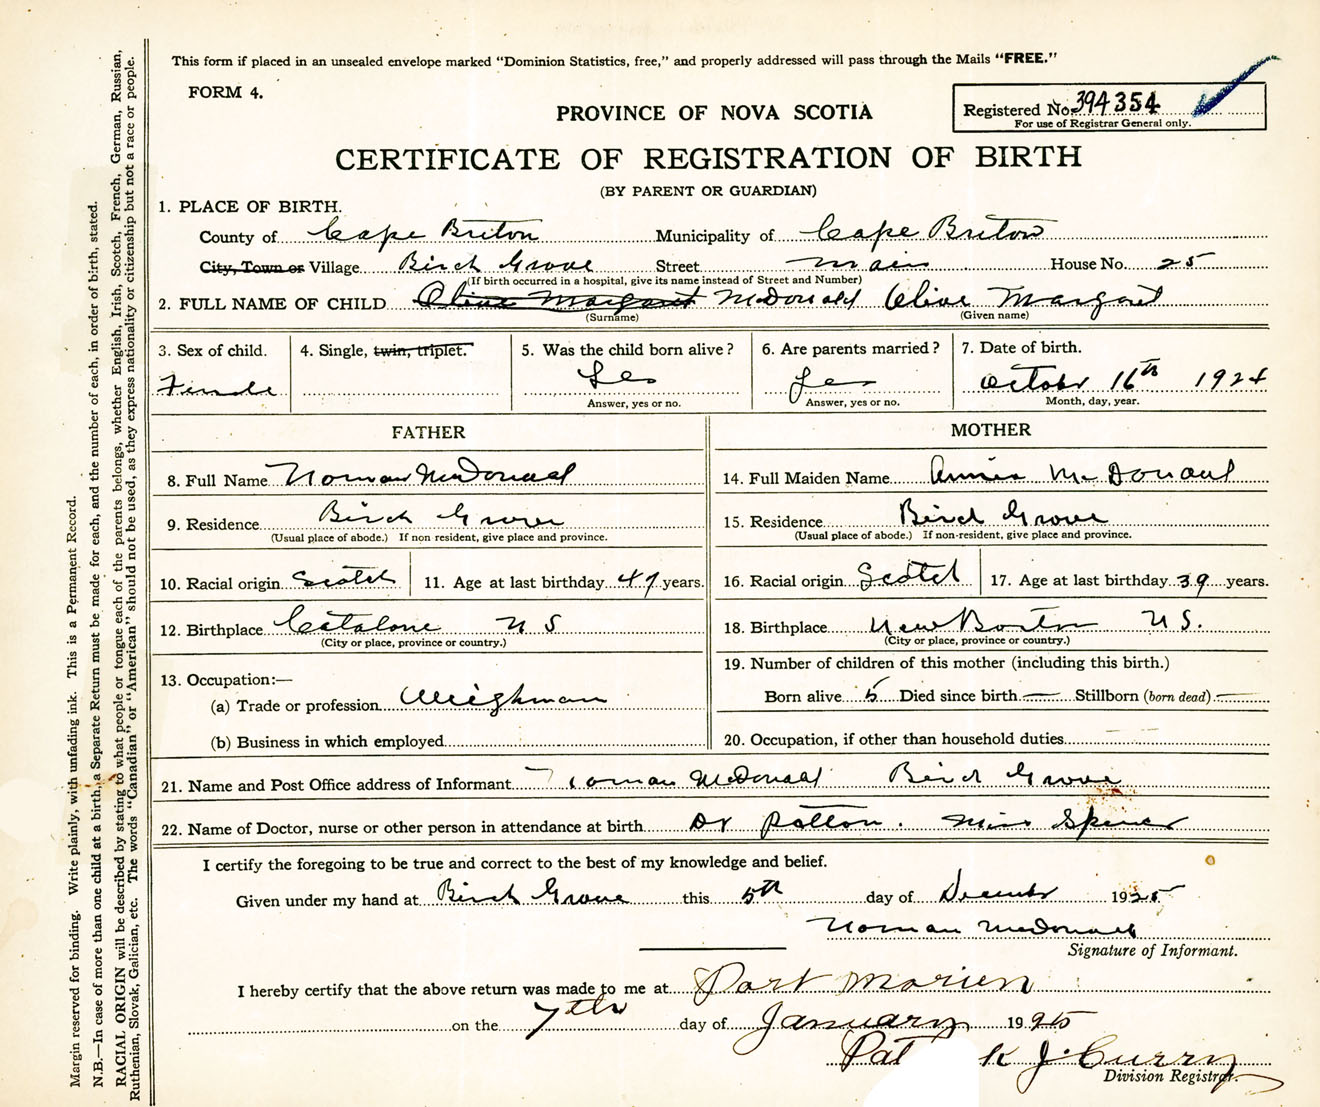 This form if placed in an unsealed envelope marked "Dominion Statistics, free," and properly addressed will pass through the Mails "FREE."
FORM 4.
PROVINCE OF NOVA SCOTIA
Registered No. 394354
For use of Registrar General only.
CERTIFICATE OF REGISTRATION OF BIRTH
(BY PARENT OR GUARDIAN)
1. PLACE OF BIRTH.
County of Cape Briton Municipality of Cape Briton
City, Town or Village Birch Grove Street Main House No. 25
(If birth occurred in a hospital, give its name instead of Street and Number)
2. FULL NAME OF CHILD Olive Margaret McDonald Olive Margaret
(Surname) (Given name)
3. Sex of child. 4. Single, twin, triplet. 5. Was the child born alive? 6. Are parents married? 7. Date of birth.
Female Yes Yes October 16th 1924
Answer, yes or no. Answer, yes or no. Month, day, year.
FATHER MOTHER
8. Full Name Norman McDonald 14. Full Maiden Name Annie McDonald
9. Residence Birch Grove 15. Residence Birch Grove
(Usual place of abode.) If non resident, give place and province. (Usual place of abode.) If non-resident, give place and province.
10. Racial origin Scotch 11. Age at last birthday 47 years. 16. Racial origin Scotch 17. Age at last birthday 39 years.
12. Birthplace Catalone N S 18. Birthplace New Boston N S.
(City or place, province or country.) (City or place, province or country.)
13. Occupation:— 19. Number of children of this mother (including this birth.)
(a) Trade or profession Weighman Born alive 5 Died since birth — Stillborn (born dead) —
(b) Business in which employed 20. Occupation, if other than household duties
21. Name and Post Office address of Informant Norman McDonald Birch Grove
22. Name of Doctor, nurse or other person in attendance at birth Dr Patton. Miss Spencer
I certify the foregoing to be true and correct to the best of my knowledge and belief.
Given under my hand at Birch Grove this 5th day of December 1925
Norman McDonald
Signature of Informant.
I hereby certify that the above return was made to me at Port Morien
on the 7th day of January 1925
Pat k J. Curry
Division Registrar.
Margin reserved for binding. Write plainly, with unfading ink. This is a Permanent Record.
N.B.—In case of more than one child at a birth, a Separate Return must be made for each, and the number of each, in order of birth, stated.
RACIAL ORIGIN will be described by stating to what people or tongue each of the parents belongs, whether English, Irish, Scotch, French, German, Russian,
Ruthenian, Slovak, Galician, etc. The words "Canadian" or "American" should not be used, as they express nationality or citizenship but not a race or people.